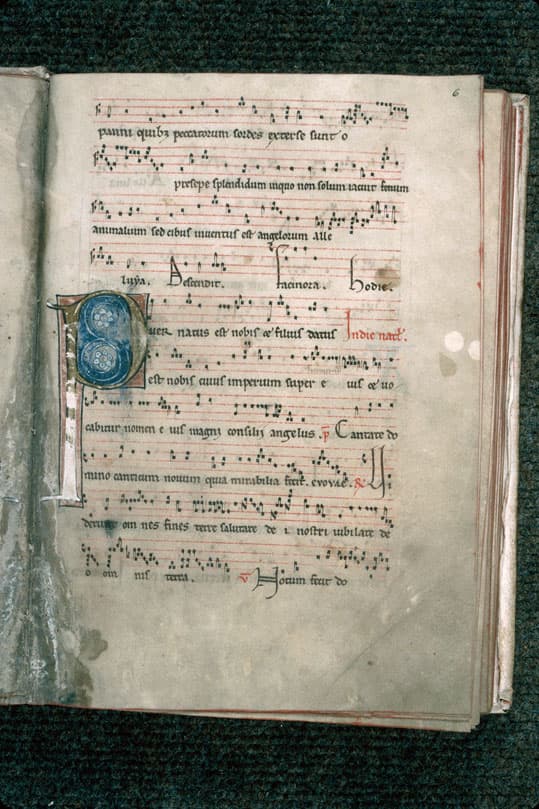 6
panni quibꝫ peccatorum sordes exterse sunt o
presepe splendidum inquo non solum iacuit fenum
animalium sed cibus inuentus est angelorum alle
luya. Descendit. Facinora. Hodie.
Puer natus est nobis et filius datus In die natł.
est nobis cuius imperium super e ius et uo
cabitur nomen e ius magni consilii angelus. p̄ Cantate do
mino canticum nouum quia mirabilia fecit. evovae. R̶ Vi
derunt om nes fines terre salutare de i nostri iubilate de
o om nis terra. v̄ Notum fecit do